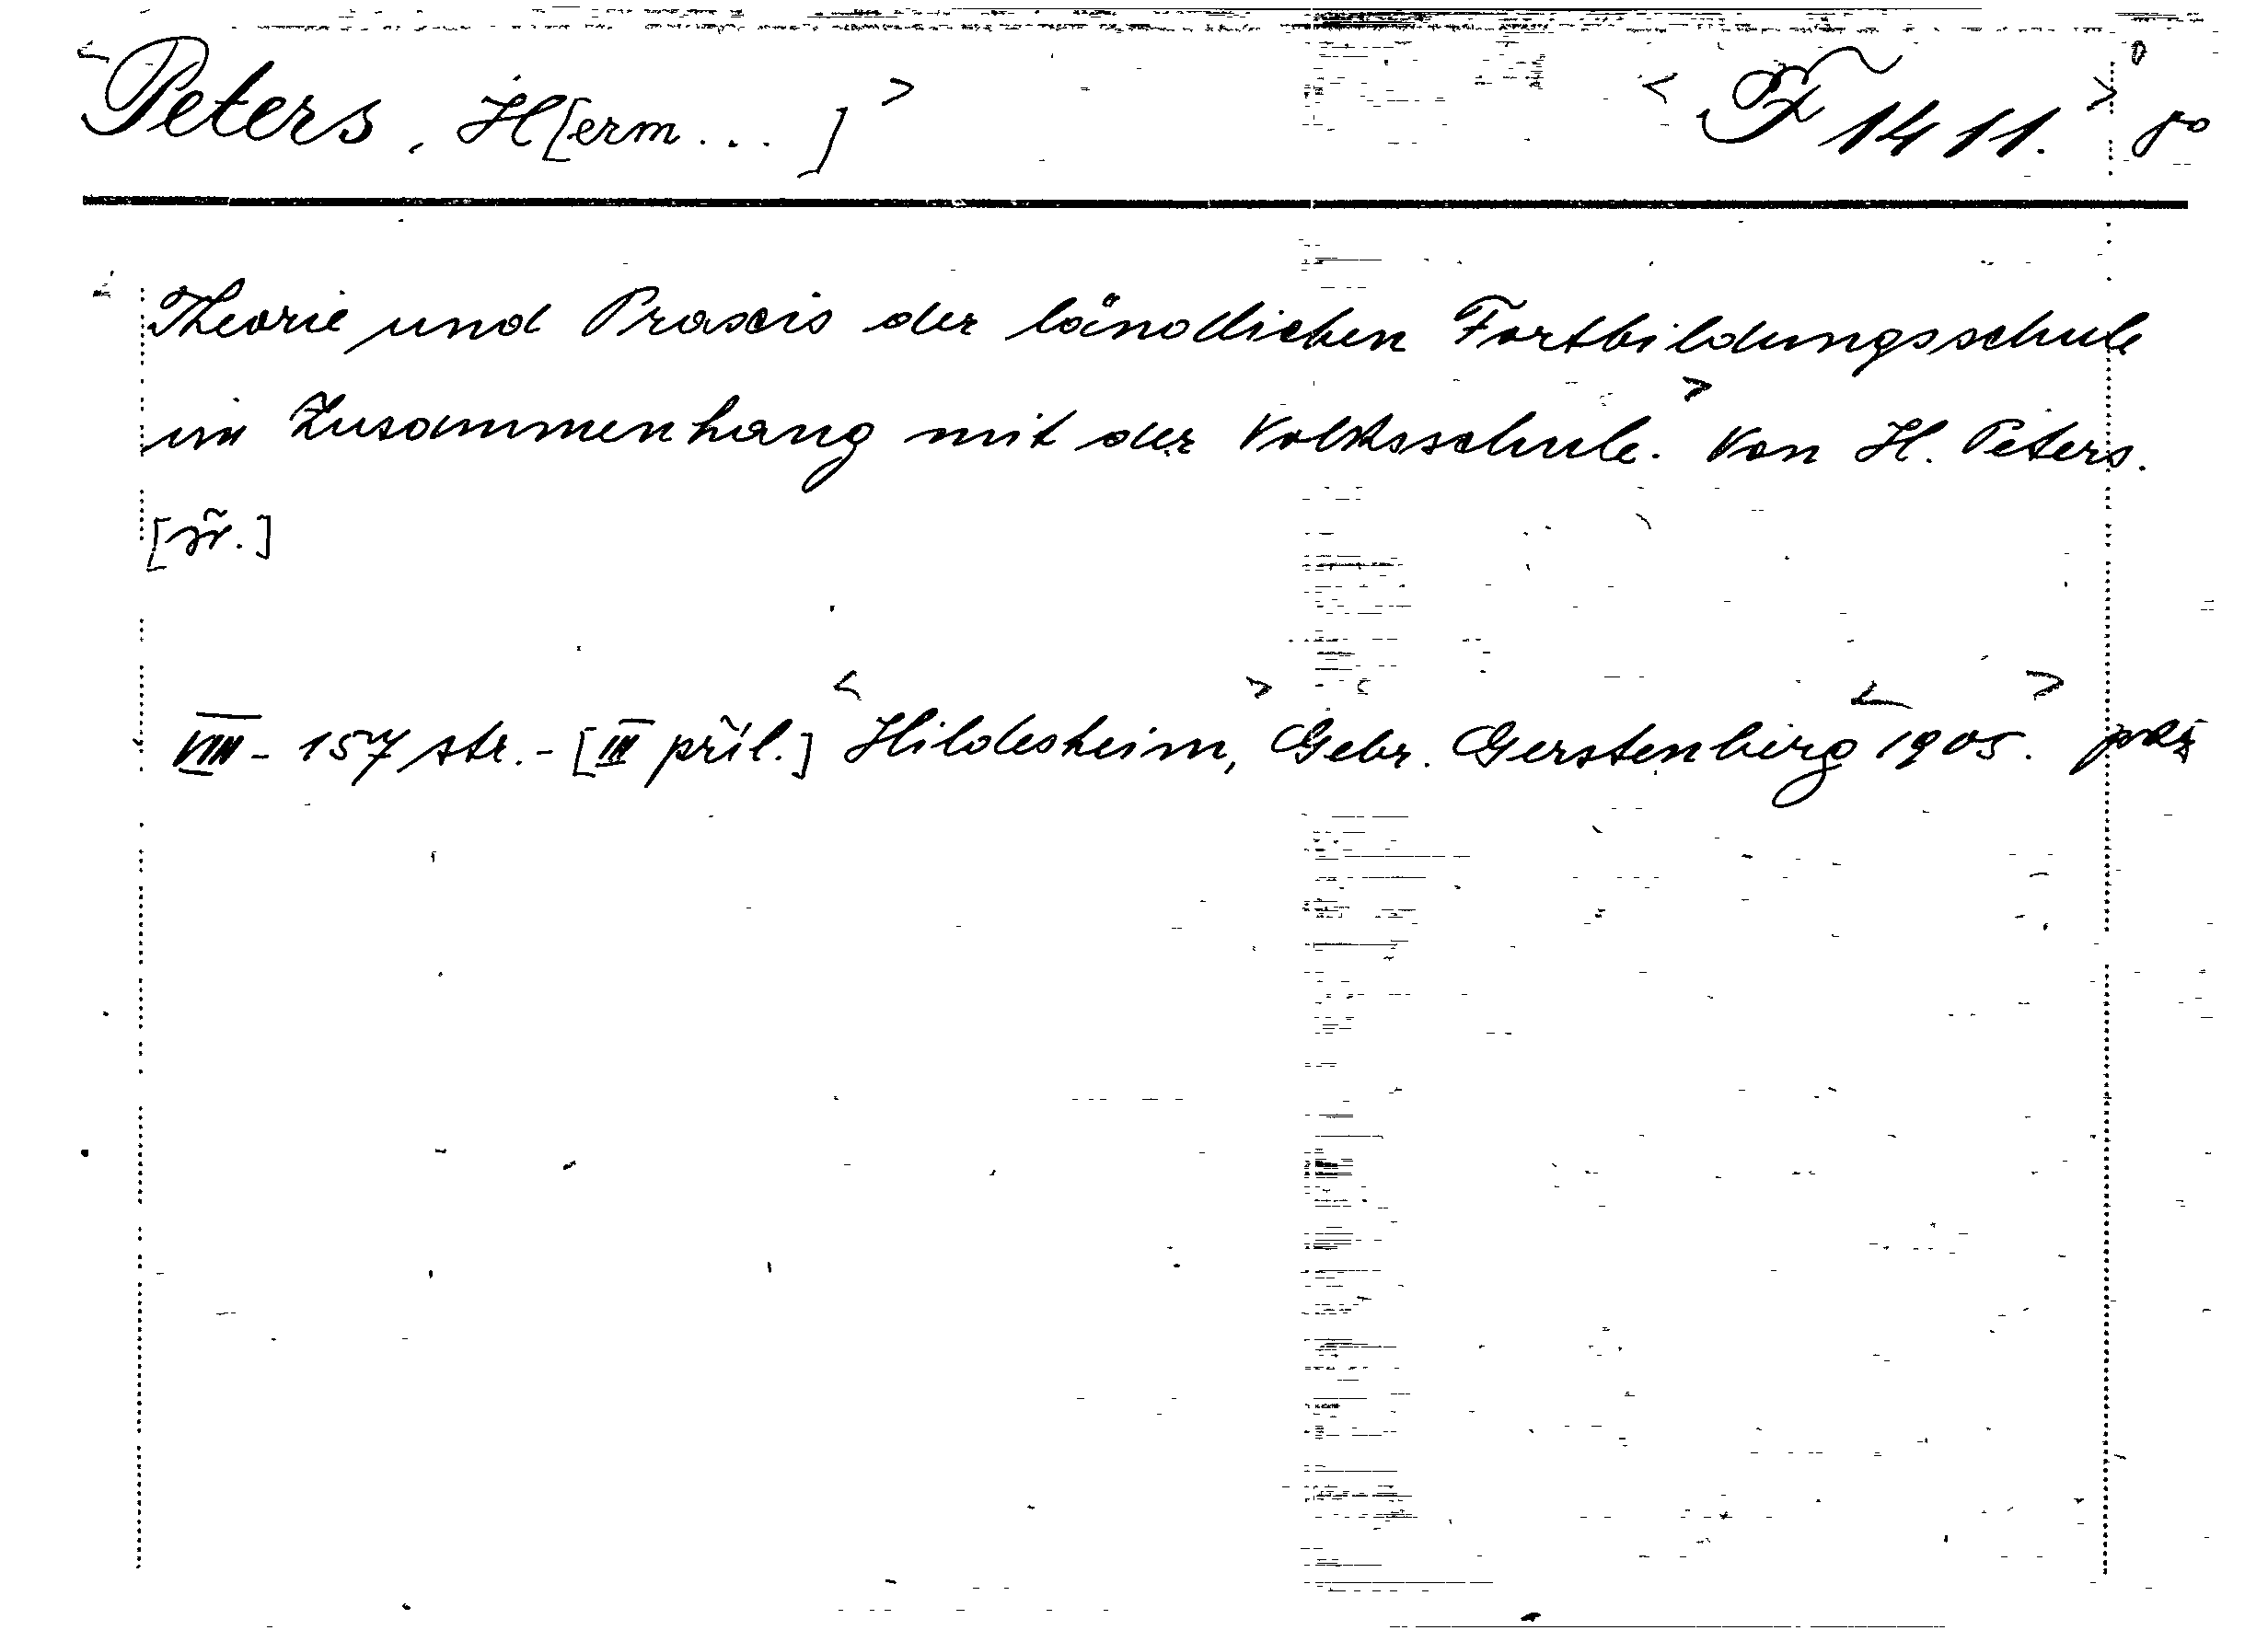 Peters, H[erm...] F 1411.
Theorie und Praxis der ländlichen Fortbildungsschule
im Zusammenhang mit der Volksschule. Von H. Peters.
VIII - 157 str. - [III příl.] Hildesheim, Gebr. Gerstenberg 1905.